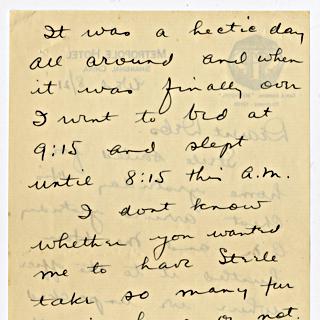 It was a hectic day
all around and when
it was finally over
I went to bed at
9:15 and slept
until 8:15 this A.M.
I dont know
whether you wanted
me to have Steele
take so many fur
or not.